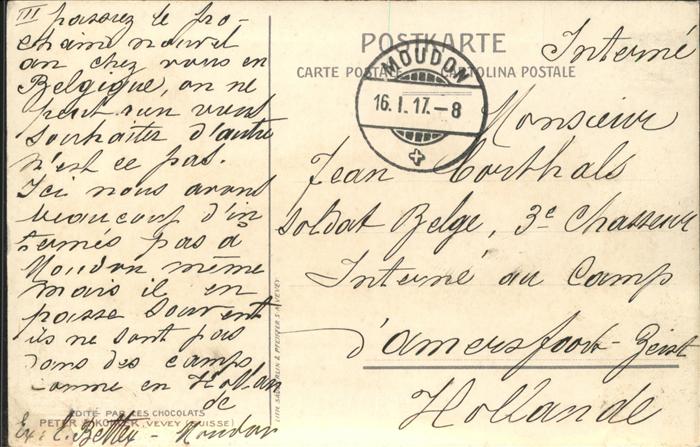 III passiez le pro-
chain nouvel
an chez vous en
Belgique, on ne
peut rien vous
souhaiter d'autre
n'est ce pas.
Ici nous avons
beaucoup d'in
ternés pas à
Moudon même
mais il en
passe souvent
ils ne sont pas
dans des camps
comme en Hollan
de
Ex: C. Bettex - Moudon
ÉDITÉ PAR LES CHOCOLATS
PETER, KOHLER, VEVEY (SUISSE)
LITH. SÄUBERLIN & PFEIFFER S.A. VEVEY
POSTKARTE
CARTE POSTALE CARTOLINA POSTALE
MOUDON
16. I. 17. – 8
Interné
Monsieur
Jean Corthals
Soldat Belge, 3e Chasseur
Interné au Camp
d'Amersfoort-Zeist
Hollande